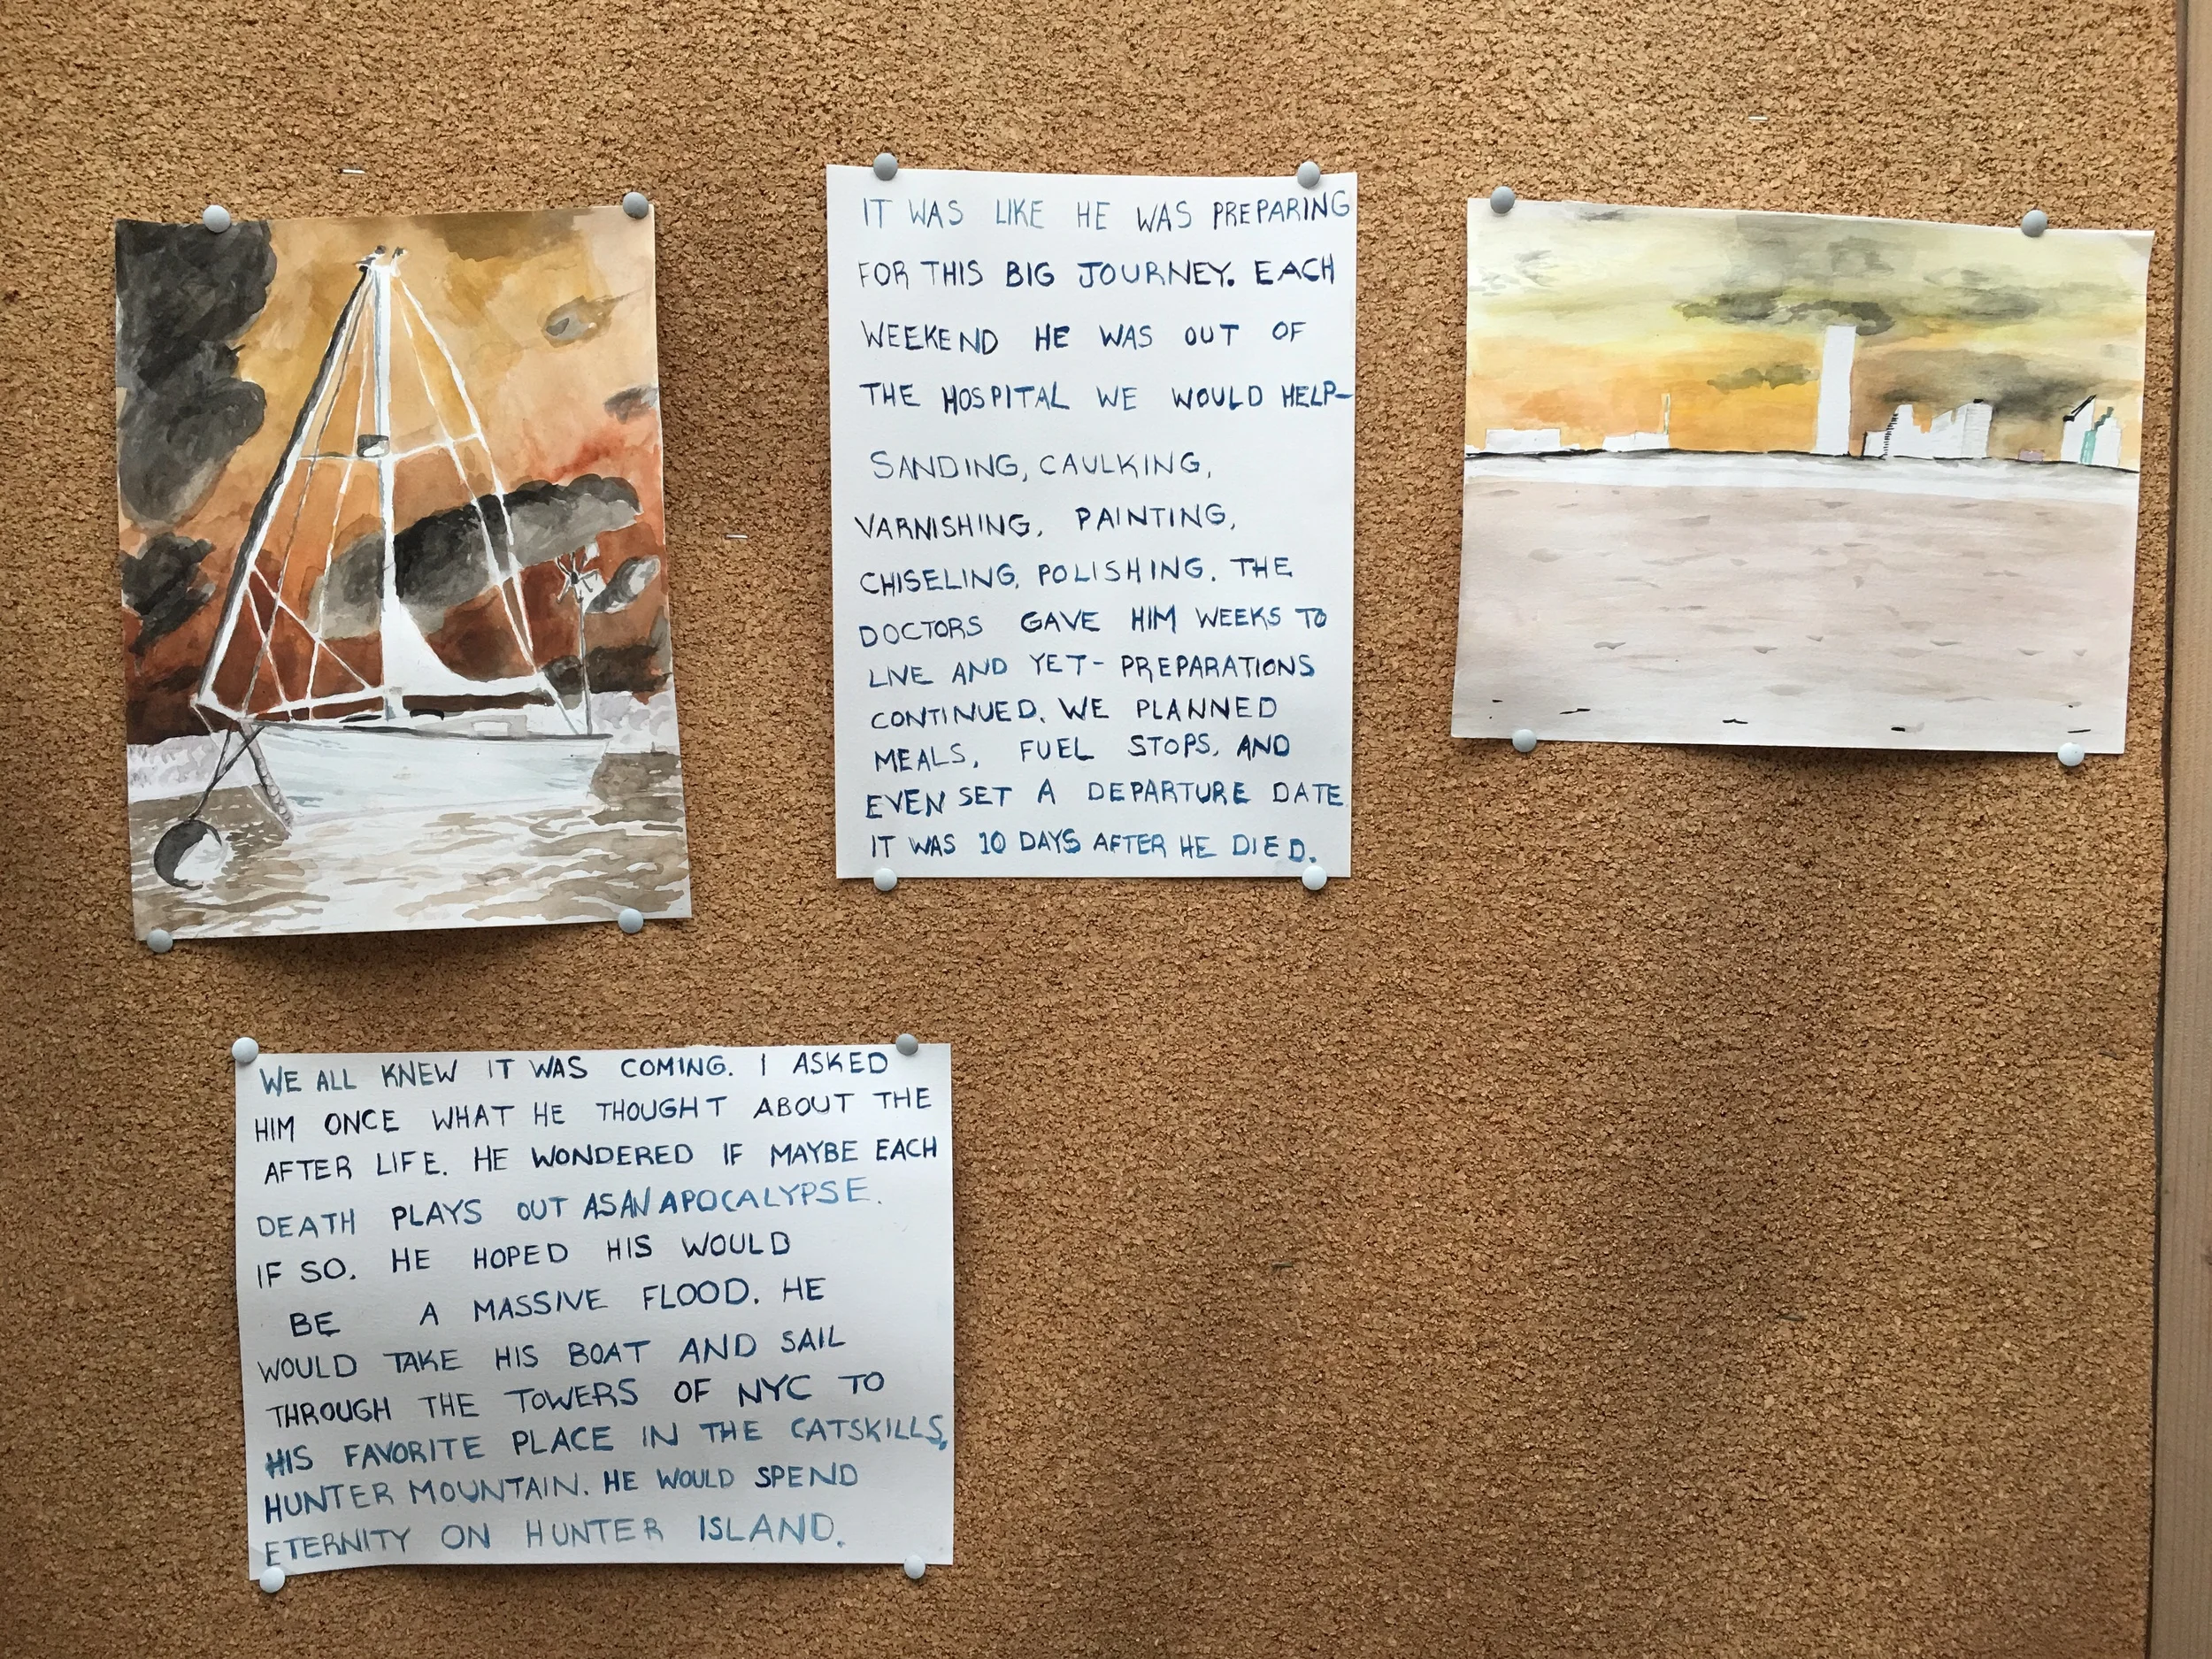 IT WAS LIKE HE WAS PREPARING
FOR THIS BIG JOURNEY. EACH
WEEKEND HE WAS OUT OF
THE HOSPITAL WE WOULD HELP-
SANDING, CAULKING,
VARNISHING, PAINTING,
CHISELING, POLISHING. THE
DOCTORS GAVE HIM WEEKS TO
LIVE AND YET- PREPARATIONS
CONTINUED. WE PLANNED
MEALS, FUEL STOPS, AND
EVEN SET A DEPARTURE DATE
IT WAS 10 DAYS AFTER HE DIED.
WE ALL KNEW IT WAS COMING. I ASKED
HIM ONCE WHAT HE THOUGHT ABOUT THE
AFTER LIFE. HE WONDERED IF MAYBE EACH
DEATH PLAYS OUT AS AN APOCALYPSE.
IF SO, HE HOPED HIS WOULD
BE A MASSIVE FLOOD. HE
WOULD TAKE HIS BOAT AND SAIL
THROUGH THE TOWERS OF NYC TO
HIS FAVORITE PLACE IN THE CATSKILLS,
HUNTER MOUNTAIN. HE WOULD SPEND
ETERNITY ON HUNTER ISLAND.